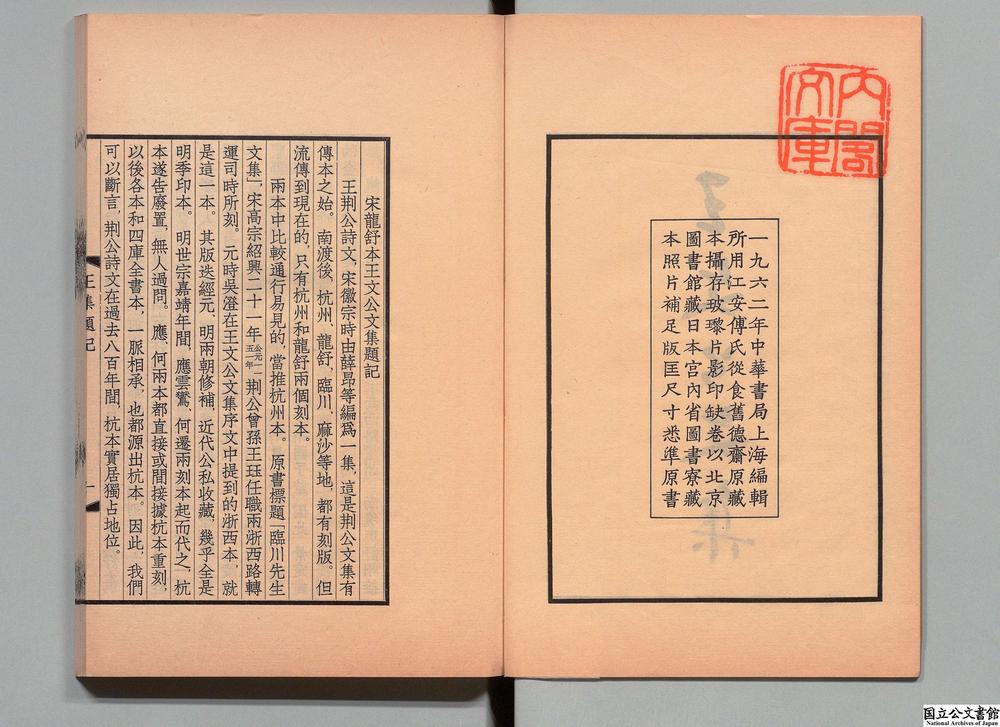 內閣
文庫
一九六二年中華書局上海編輯
所用江安傅氏從食舊德齋原藏
本攝存玻瓈片影印缺卷以北京
圖書館藏日本宮內省圖書寮藏
本照片補足版匡尺寸悉準原書
宋龍舒本王文公文集題記
王荆公詩文，宋徽宗時由薛昂等編爲一集，這是荆公文集有
傳本之始。南渡後，杭州、龍舒、臨川、麻沙等地，都有刻版。但
流傳到現在的，只有杭州和龍舒兩個刻本。
兩本中比較通行易見的，當推杭州本。原書標題「臨川先生
文集」，宋高宗紹興二十一年公元一一五一年荆公曾孫王珏任職兩浙西路轉
運司時所刻。元時吳澄在王文公文集序文中提到的浙西本，就
是這一本。其版迭經元、明兩朝修補，近代公私收藏，幾乎全是
明季印本。明世宗嘉靖年間，應雲鸑、何遷兩刻本起而代之，杭
本遂告廢置，無人過問。應、何兩本都直接或間接據杭本重刻，
以後各本和四庫全書本，一脈相承，也都源出杭本。因此，我們
可以斷言，荆公詩文在過去八百年間，杭本實居獨占地位。
王集題記
一
国立公文書館
National Archives of Japan